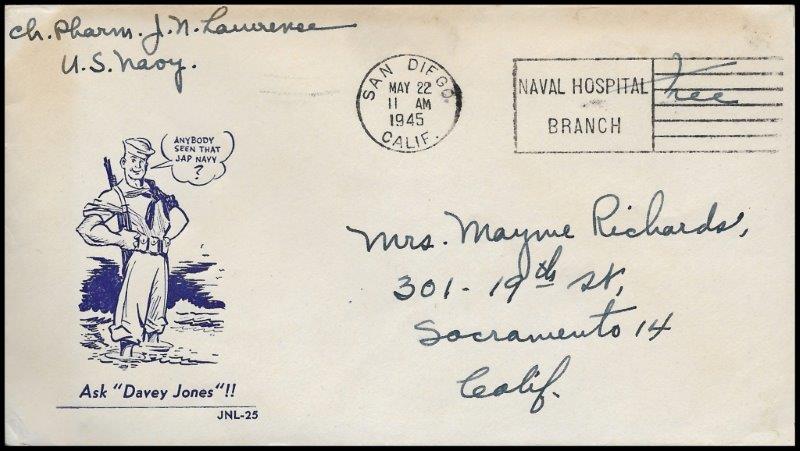 Ch. Pharm. J. N. Lawrence
U.S. Navy.
SAN DIEGO
MAY 22
11 AM
1945
CALIF.
NAVAL HOSPITAL
BRANCH
Free
ANYBODY
SEEN THAT
JAP NAVY
?
Mrs. Mayme Richards,
301 - 19th St,
Sacramento 14
Calif.
Ask "Davey Jones"!!
JNL-25